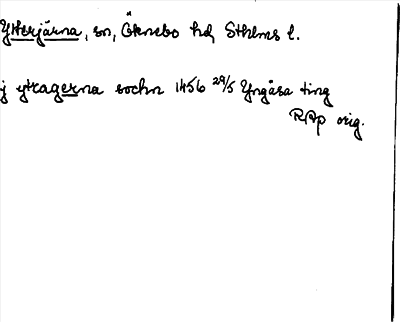 Ytterjärna, sn, Öknebo hd, Sthlms l.
j ytragerna sochn 1456 29/5 Yngåsa ting
RAp orig.